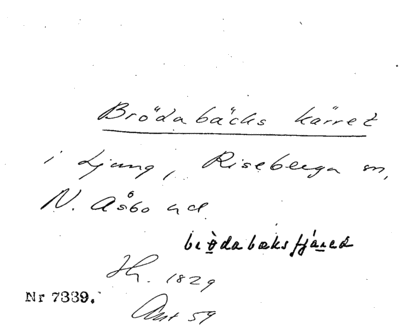 Brödabäcks kärret
i Ljung, Riseberga sn,
N. Åsbo hd
brödabæksfjäred
Hg. 1829
Nr 7339.
Ant 59